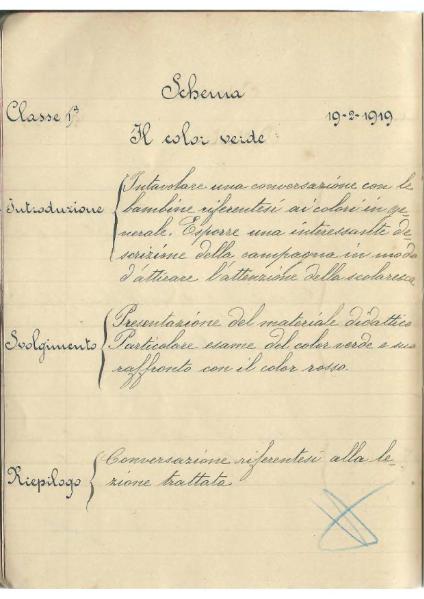 Schema
Classe 1ª 19-2-1919
Il color verde
Introduzione
Intavolare una conversazione con le
bambine riferentesi ai colori in ge-
nerale. Esporre una interessante de-
scrizione della campagna in modo
d'attirare l'attenzione della scolaresca
Svolgimento
Presentazione del materiale didattico
Particolare esame del color verde e suo
raffronto con il color rosso.
Riepilogo
Conversazione riferentesi alla le-
zione trattata